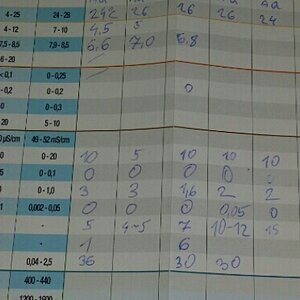 4 - 25 24 - 28 24,2 26 26 26 24
4 - 12 7 - 10 4,5 5
7,5 - 8,5 7,9 - 8,5 6,6 7,0 6,8
6 - 20
< 0,1 0 - 0,25
- 0,2 0 - 0,2 0
0 - 0,3
5 - 10
µS/cm 49 - 52 mS/cm
0 - 20 10 5 10 10 10
0 - 0,1 0 0 0 0 0
0 - 1,0 3 3 1,6 2 2
0,002 - 0,05 0 0 0 0,05 0
5 4-5 7 10-12 15
1 6
0,04 - 2,5 36 30 30
400 - 440
1200 - 1600